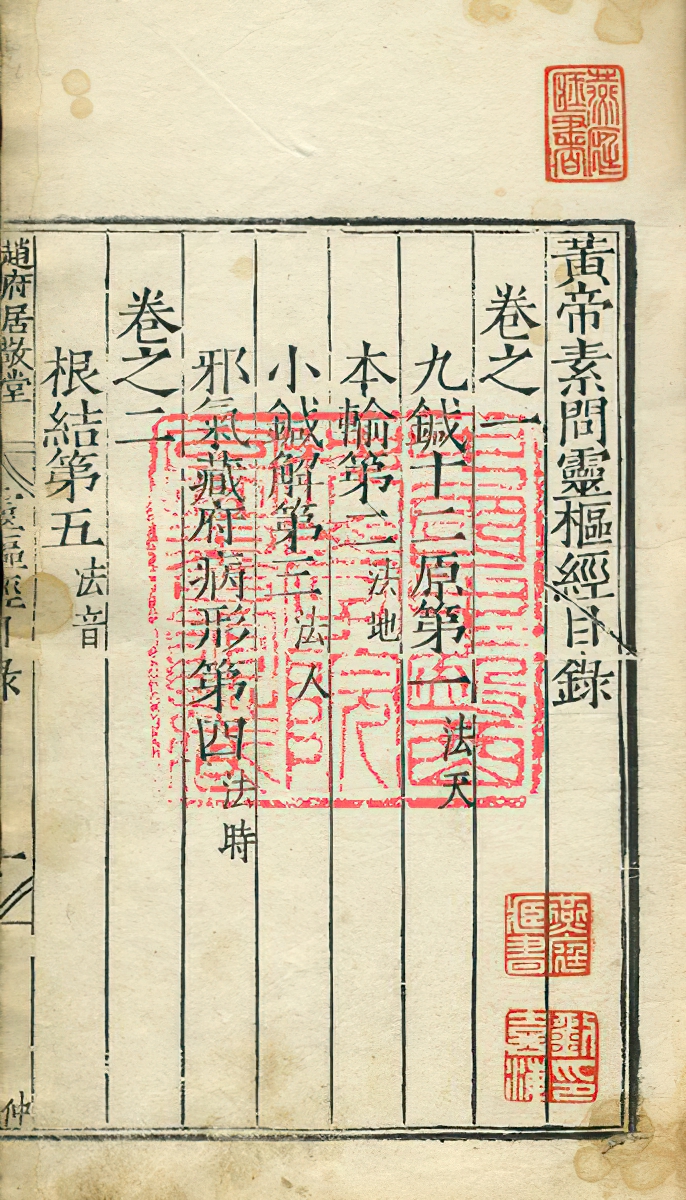 黃帝素問靈樞經目錄
卷之一
九鍼十二原第一法天
本輸第二法地
小鍼解第三法人
邪氣藏府病形第四法時
卷之二
根結第五法音
趙府居敬堂
靈樞經目錄
一
仲
燕庭
藏書
燕庭
藏書